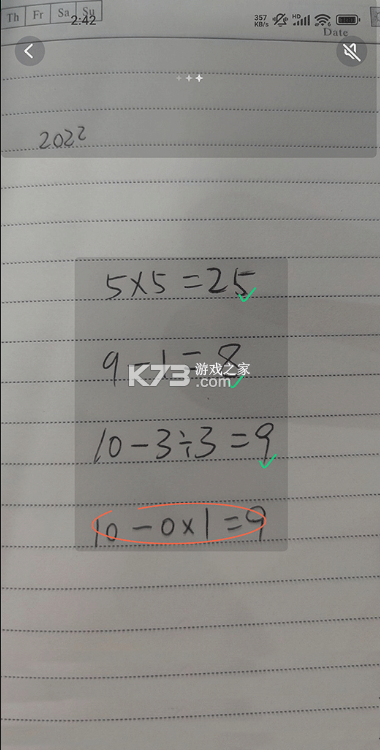 Th Fr Sa Su
2:42
357 KB/s HD 6
Date
2022
5×5=25
9-1=8
K73 游戏之家
.com
10-3÷3=9
10-0×1=9